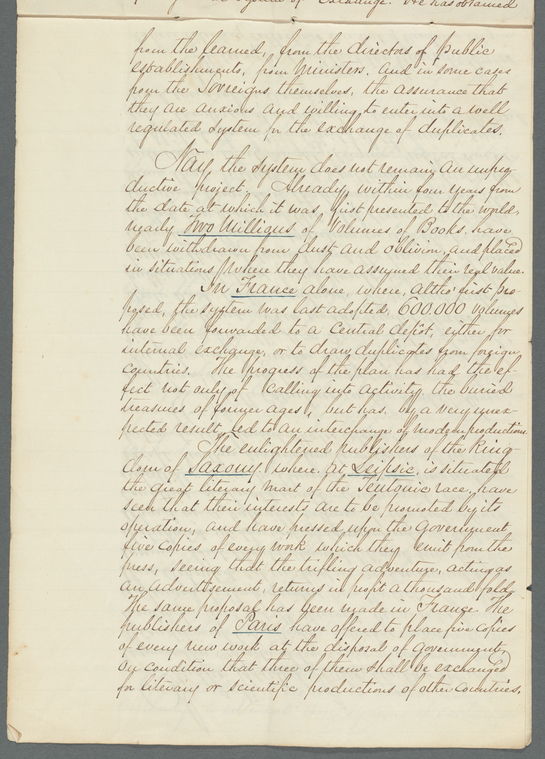 of Exchange. He has obtained
from the learned, from the directors of Public
establishments, from Ministers, and in some cases
from the Sovereigns themselves, the assurance that
they are anxious and willing to enter into a well
regulated system for the exchange of duplicates.
Nay, the system does not remain an unpro-
ductive project, Already, within four years from
the date at which it was first presented to the world,
nearly Two Millions of Volumes of Books, have
been withdrawn from dust and oblivion, and placed
in situations where they have assumed their real value.
In France alone, where, altho' first pro-
posed, the system was last adopted, 600.000 volumes
have been forwarded to a central depot, either for
internal exchange, or to draw duplicates from foreign
countries. The progress of the plan has had the ef-
fect not only of calling into activity the buried
treasures of former ages, but has, by a very unex-
pected result, led to an interchange of modern productions.
The enlightened publishers of the King-
dom of Saxony, where at Leipsic is situated
the great literary mart of the Teutonic race, have
seen that their interests are to be promoted by its
operation, and have pressed upon the Government,
five copies of every work which they emit from the
press, seeing that the trifling adventure, acting as
an advertisement, returns in profit a thousand fold.
The same proposal has been made in France. The
publishers of Paris have offered to place five copies
of every new work at the disposal of government,
by condition that three of them shall be exchanged
for literary or scientific productions of other countries.